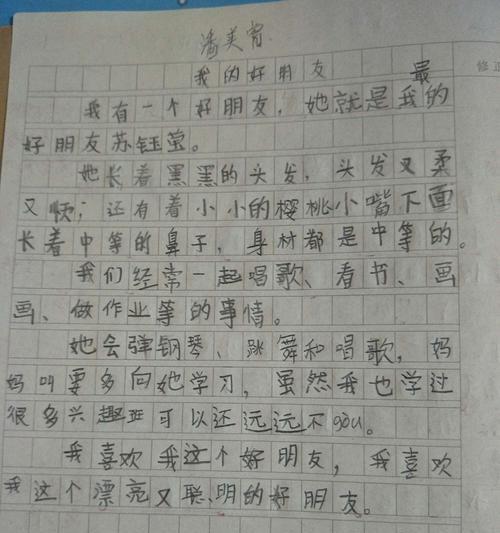 潘美宵
我的好朋友
最
我有一个好朋友，她就是我的
好朋友苏钰莹。
她长着黑黑的头发，头发又柔
又顺；还有着小小的樱桃小嘴下面
长着中等的鼻子，身材都是中等的。
我们经常一起唱歌、看书、画
画、做作业等的事情。
她会弹钢琴、跳舞和唱歌，妈
妈叫要多向她学习，虽然我也学过
很多兴趣班可以还远远不gòu。
我喜欢我这个好朋友，我喜欢
我这个漂亮又聪明的好朋友。